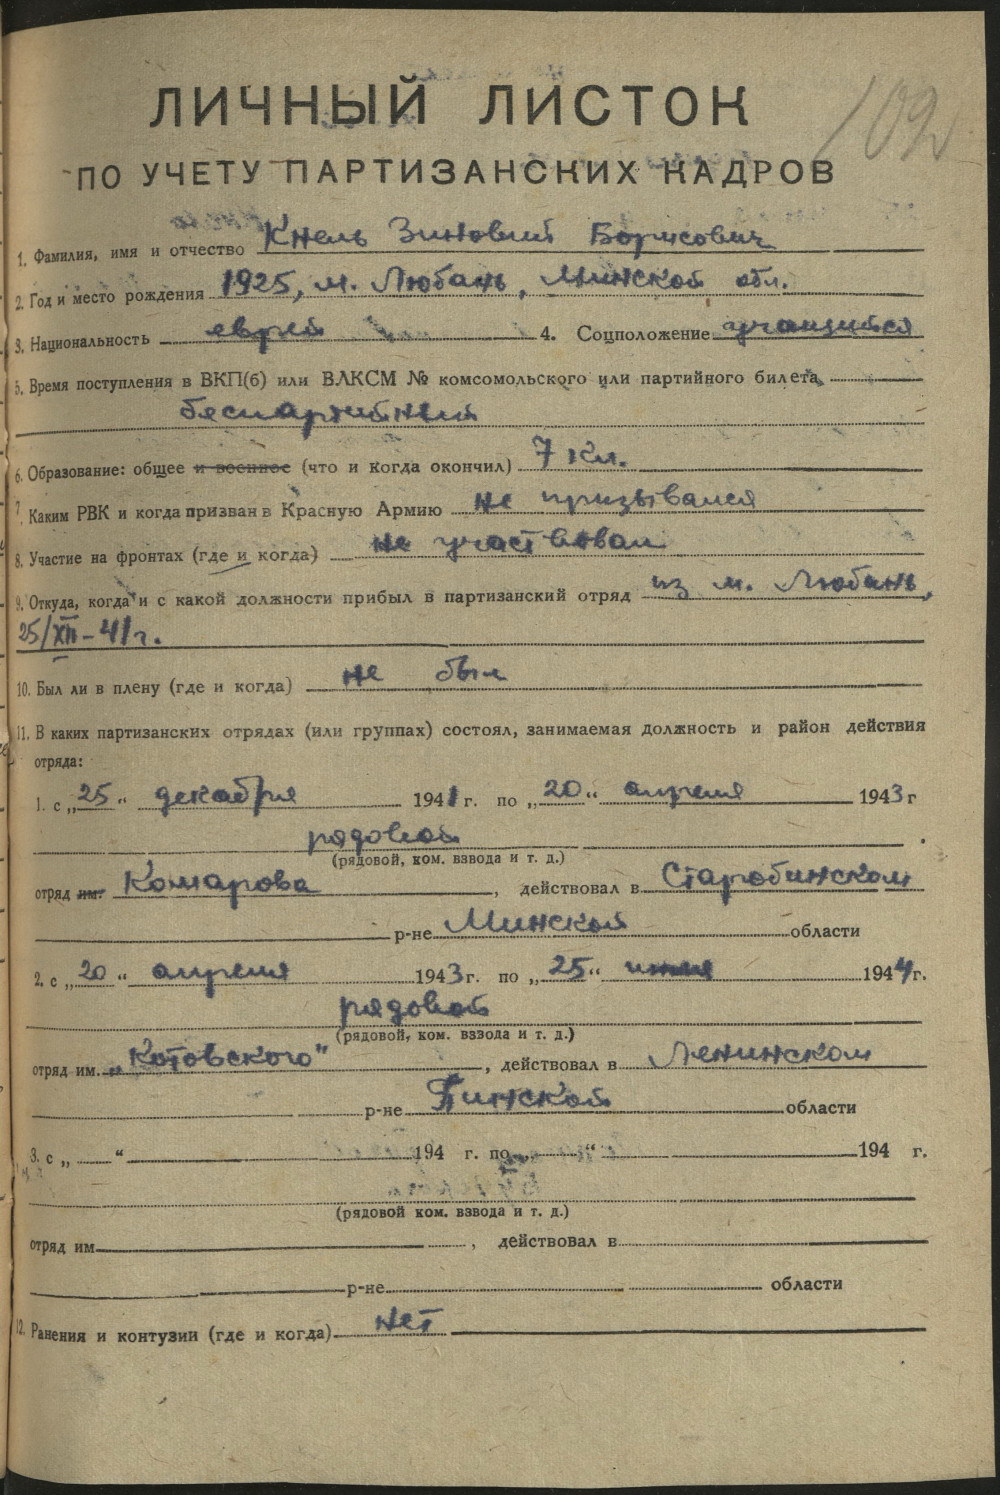 109
ЛИЧНЫЙ ЛИСТОК
ПО УЧЕТУ ПАРТИЗАНСКИХ КАДРОВ
1. Фамилия, имя и отчество Кнель Зиновий Борисович
2. Год и место рождения 1925, м. Любань, Минской обл.
3. Национальность еврей 4. Соцположение учащийся
5. Время поступления в ВКП(б) или ВЛКСМ № комсомольского или партийного билета
беспартийный
6. Образование: общее и военное (что и когда окончил) 7 кл.
7. Каким РВК и когда призван в Красную Армию не призывался
8. Участие на фронтах (где и когда) не участвовал
9. Откуда, когда и с какой должности прибыл в партизанский отряд из м. Любань,
25/XII-41г.
10. Был ли в плену (где и когда) не был
11. В каких партизанских отрядах (или группах) состоял, занимаемая должность и район действия
отряда:
1. с „25“ декабря 1941 г. по „20“ апреля 1943 г
рядовой
(рядовой, ком. взвода и т. д.)
отряд им. Комарова, действовал в Старобинском
р-не Минской области
2. с „20“ апреля 1943 г. по „25“ 1944 г.
рядовой
(рядовой, ком. взвода и т. д.)
отряд им. „Котовского", действовал в Ленинском
р-не Пинской области
3. с „ “ 194 г. по „ “ 194 г.
(рядовой ком. взвода и т. д.)
отряд им , действовал в
р-не области
12. Ранения и контузии (где и когда) нет